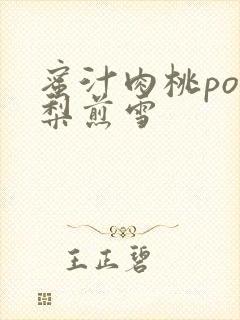 蜜汁肉桃po
梨煎雪
王正碧